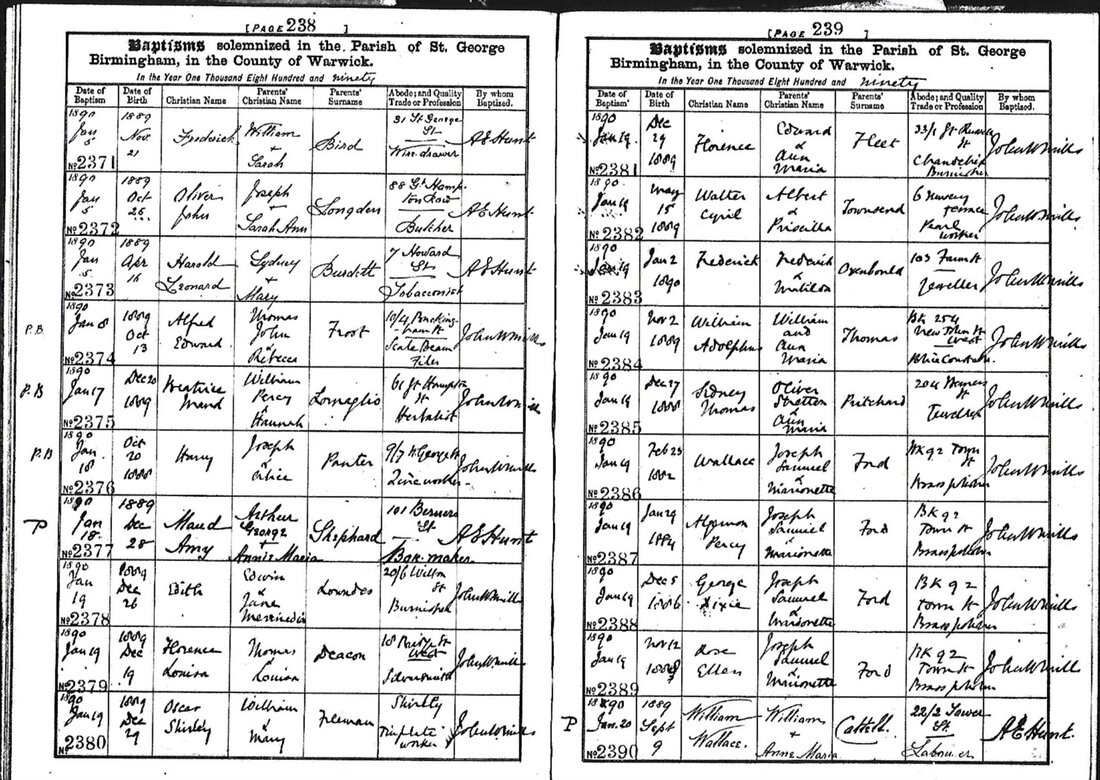 [PAGE 238]
Baptisms solemnized in the Parish of St. George
Birmingham, in the County of Warwick.
In the Year One Thousand Eight Hundred and ninety
Date of Baptism Date of Birth Christian Name Parents' Christian Name Parents' Surname Abode; and Quality Trade or Profession By whom Baptised.
1890 Jan 5 No 2371 1889 Nov. 21 Frederick William + Sarah Bird 31 St George St Wire drawer A E Hunt
1890 Jan 5 No 2372 1889 Oct 25 Oliver John Joseph Sarah Ann Longden 88 Gt Hampton Row Butcher A E Hunt
1890 Jan 5 No 2373 1889 Apr Harold Leonard Sydney + Mary Burditt 7 Howard St Tobacconist A E Hunt
P.B. 1890 Jan 8 No 2374 1889 Oct 13 Alfred Edward Thomas John & Rebecca Frost 10/4 Buckingham St Scale Beam Filer John W Mills
P.B 1890 Jan 17 No 2375 Dec 20 1889 Beatrice Maud William Percy & Hannah Lomaglio 61 Gt Hampton St Herbalist John W Mills
P.B 1890 Jan 18 No 2376 Oct 20 1888 Harry Joseph & Alice Panter 9/7 St George St John W Mills
P 1890 Jan 18. No 2377 1889 Dec 28 Maud Amy Arthur George + Annie Maria Shephard 101 Berners St Box-maker A E Hunt
1890 Jan 19 No 2378 1889 Dec 26 Edith Edwin & Jane Lowndes 20/6 Wilton St Burnisher John W Mills
1890 Jan 19 No 2379 1889 Dec 19 Florence Louisa Thomas Louisa Deacon 18 St Silversmith John W Mills
1890 Jan 19 No 2380 1889 Dec 29 Oscar Shirley William & Mary Freeman Shirley Tinplate worker John W Mills
[PAGE 239]
Baptisms solemnized in the Parish of St. George
Birmingham, in the County of Warwick.
In the Year One Thousand Eight Hundred and ninety
Date of Baptism Date of Birth Christian Name Parents' Christian Name Parents' Surname Abode; and Quality Trade or Profession By whom Baptised.
1890 Jan 19 No 2381 Dec 29 1889 Florence Edward & Ann Maria Fleet 33/1 Gt Russell St Burnisher John W Mills
1890 Jan 19 No 2382 May 15 1889 Walter Cyril Albert & Priscilla Townsend 6 Nursery Terrace Pearl worker John W Mills
1890 Jan 19 No 2383 Jan 2 1890 Frederick Frederick & Matilda Oxenbould 103 Farm St Jeweller John W Mills
1890 Jan 19 No 2384 Nov 2 1889 William Adolphus William and Ann Maria Thomas Bk 254 New John St West John W Mills
1890 Jan 19 No 2385 Dec 27 1888 Sidney Thomas Oliver Stretton & Ann Maria Pritchard 204 St Jeweller John W Mills
1890 Jan 19 No 2386 Feb 23 1882 Wallace Joseph Samuel & Marionette Ford Bk 92 Tower St Brass polisher John W Mills
1890 Jan 19 No 2387 Jan 29 1884 Algernon Percy Joseph Samuel & Marionette Ford BK 92 Tower St Brass polisher John W Mills
1890 Jan 19 No 2388 Dec 5 1886 George Dixie Joseph Samuel & Marionette Ford BK 92 Tower St Brass polisher John W Mills
1890 Jan 19 No 2389 Nov 12 1888 Rose Ellen Joseph Samuel & Marionette Ford BK 92 Tower St Brass polisher John W Mills
P 1890 Jan. 20 No 2390 1889 Sept 9 William Wallace. William + Annie Maria Cattell. 22/2 Tower St. Labourer A E Hunt.